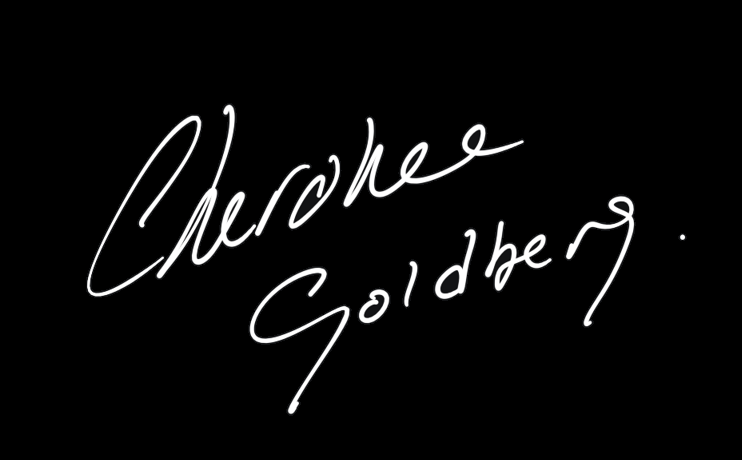 Cherokee
Goldberg.